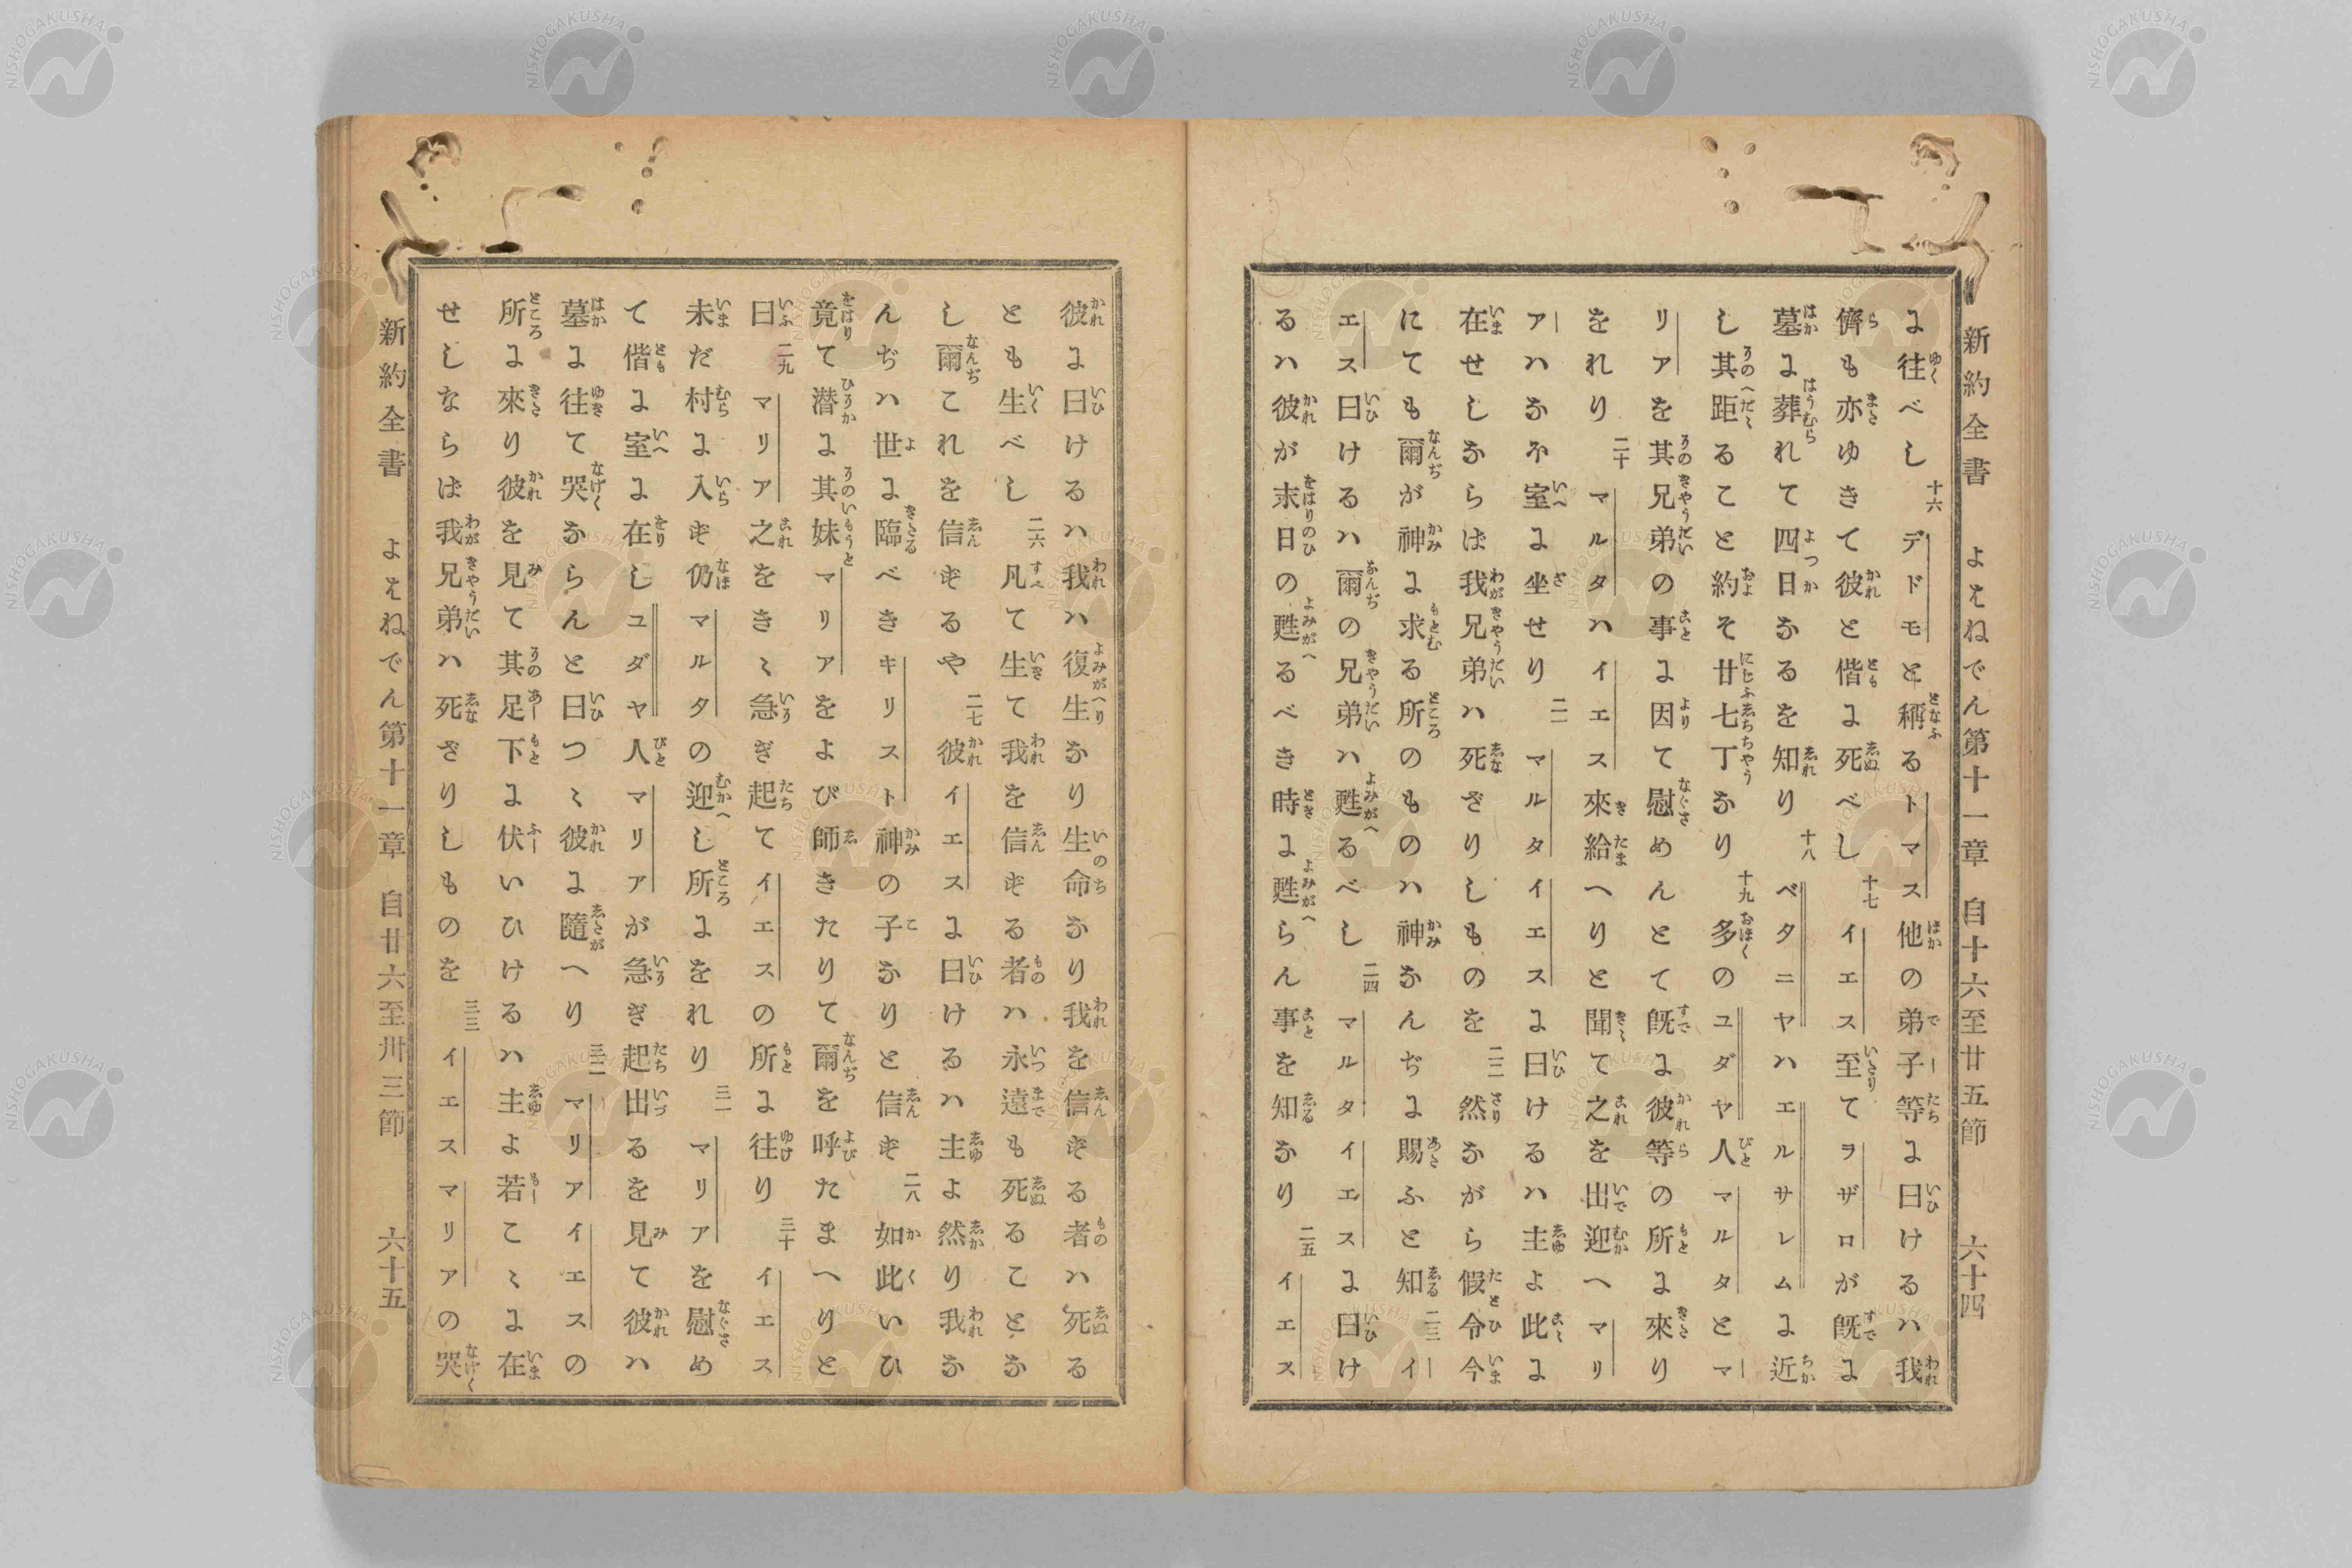 新約全書　よはねでん第十一章　自十六至廿五節　六十四
に往べし 十六 デドモと稱るトマス他の弟子等に曰けるハ我
儕も亦ゆきて彼と偕に死べし 十七 イエス至てヲザロが既に
墓に葬れて四日なるを知り 十八 ベタニヤハエルサレムに近
し其距ること約そ廿七丁なり 十九 多のユダヤ人マルタとマ
リアを其兄弟の事に因て慰めんとて既に彼等の所に來り
をれり 二十 マルタハイエス來給へりと聞て之を出迎へマリ
アハなほ室に坐せり 二一 マルタイエスに曰けるハ主よ此に
在せしならば我兄弟ハ死ざりしものを 二二 然ながら假令今
にても爾が神に求る所のものハ神なんぢに賜ふと知 二三 イ
エス曰けるハ爾の兄弟ハ甦るべし 二四 マルタイエスに曰け
るハ彼が末日の甦るべき時に甦らん事を知なり 二五 イエス
彼に曰けるハ我ハ復生なり生命なり我を信ずる者ハ死る
とも生べし 二六 凡て生て我を信ずる者ハ永遠も死ることな
し爾これを信ずるや 二七 彼イエスに曰けるハ主よ然り我な
んぢハ世に臨べきキリスト神の子なりと信ず 二八 如此いひ
竟て潜に其妹マリアをよび師きたりて爾を呼たまへりと
曰 二九 マリア之をきゝ急ぎ起てイエスの所に往り 三十 イエス
未だ村に入ず仍マルタの迎し所にをれり 三一 マリアを慰め
て偕に室に在しユダヤ人マリアが急ぎ起出るを見て彼ハ
墓に往て哭ならんと曰つゝ彼に隨へり 三二 マリアイエスの
所に來り彼を見て其足下に伏いひけるハ主よ若こゝに在
せしならば我兄弟ハ死ざりしものを 三三 イエスマリアの哭
新約全書　よはねでん第十一章　自廿六至卅三節　六十五
NISHOGAKUSHA